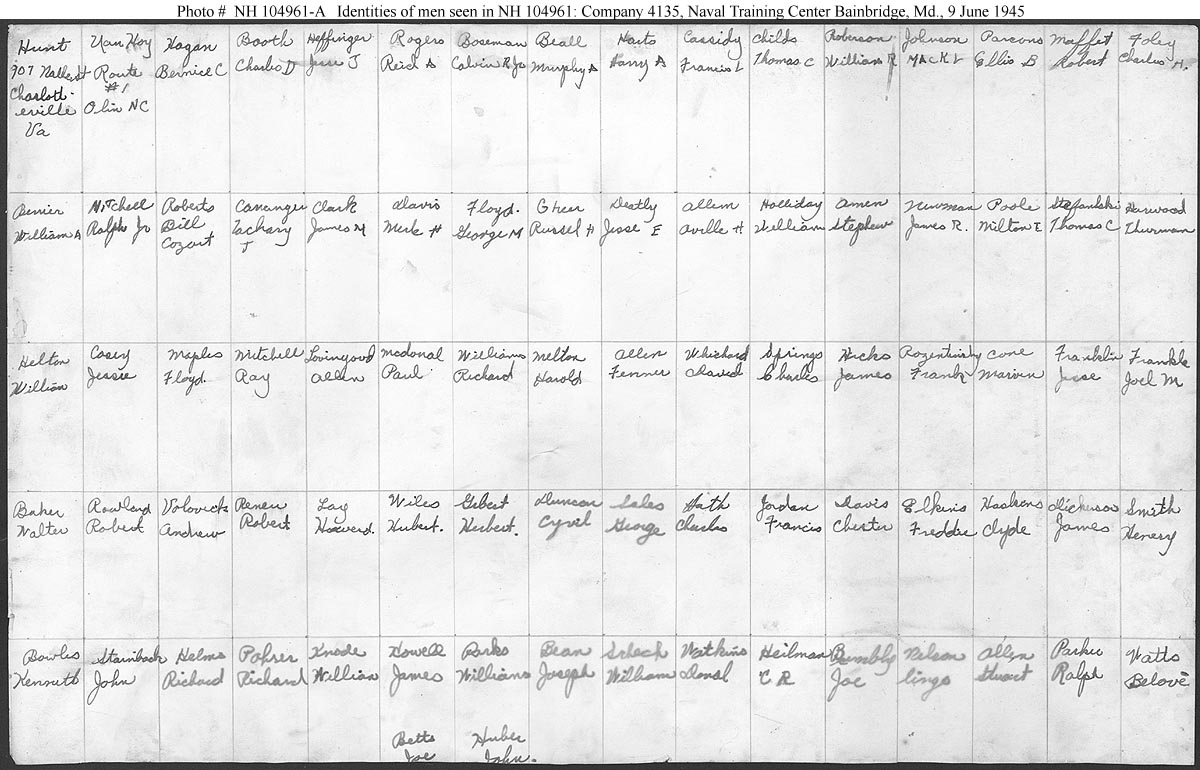 Photo # NH 104961-A Identities of men seen in NH 104961: Company 4135, Naval Training Center Bainbridge, Md., 9 June 1945
Hunt
907
Charlott-
esville
Va
Van Hoy
Route
#1
Olin NC
Hagan
Bernice C
Booth
Charles D
Heffinger
Jesse J
Rogers
Reid A
Boseman
Calvin R Jr
Beall
Murphy A
Harry A
Cassidy
Francis L
Childs
Thomas C
Roberson
William R
Johnson
Mack L
Parsons
Ellis B
Moffet
Robert
Foley
Charles H.
William A
Mitchell
Ralph Jr
Roberts
Bill
Cozart
Zachary
T
Clark
James M
Davis
H
Floyd.
George M
Greer
Russel H
Deatly
Jesse E
Allen
Orville H
Holliday
William
Amen
Stephew
Newman
James R.
Poole
Milton E
Stefanski
Thomas C
Harwood
Thurman
Helton
William
Casey
Jessie
Maples
Floyd.
Mitchell
Ray
Lovingood
Allen
Mcdonal
Paul
Williams
Richard
Melton
Harold
Allen
Fenner
Whichard
David
Springs
Charles
Hicks
James
Frank
Cone
Marvin
Franklin
Jesse
Frankle
Joel M
Baker
Walter
Rowland
Robert
Volovick
Andrew
Robert
Lay
Howard.
Wiles
Hubert.
Gibert
Herbert.
Duncan
Cyril
Sales
George
Charles
Jordan
Francis
Davis
Chester
Elkins
Freddie
Haskens
Clyde
Dickerson
James
Smith
Henery
Bowles
Kenneth
Stainback
John
Helms
Richard
Pohrer
Richard
Knode
William
Howell
James
Parks
Williams
Bean
Joseph
William
Watkins
Donal
Heilman
C R
Bumbly
Joe
Allen
Stuart
Parker
Ralph
Watts
Belove
Betts
Joe
Huber
John.